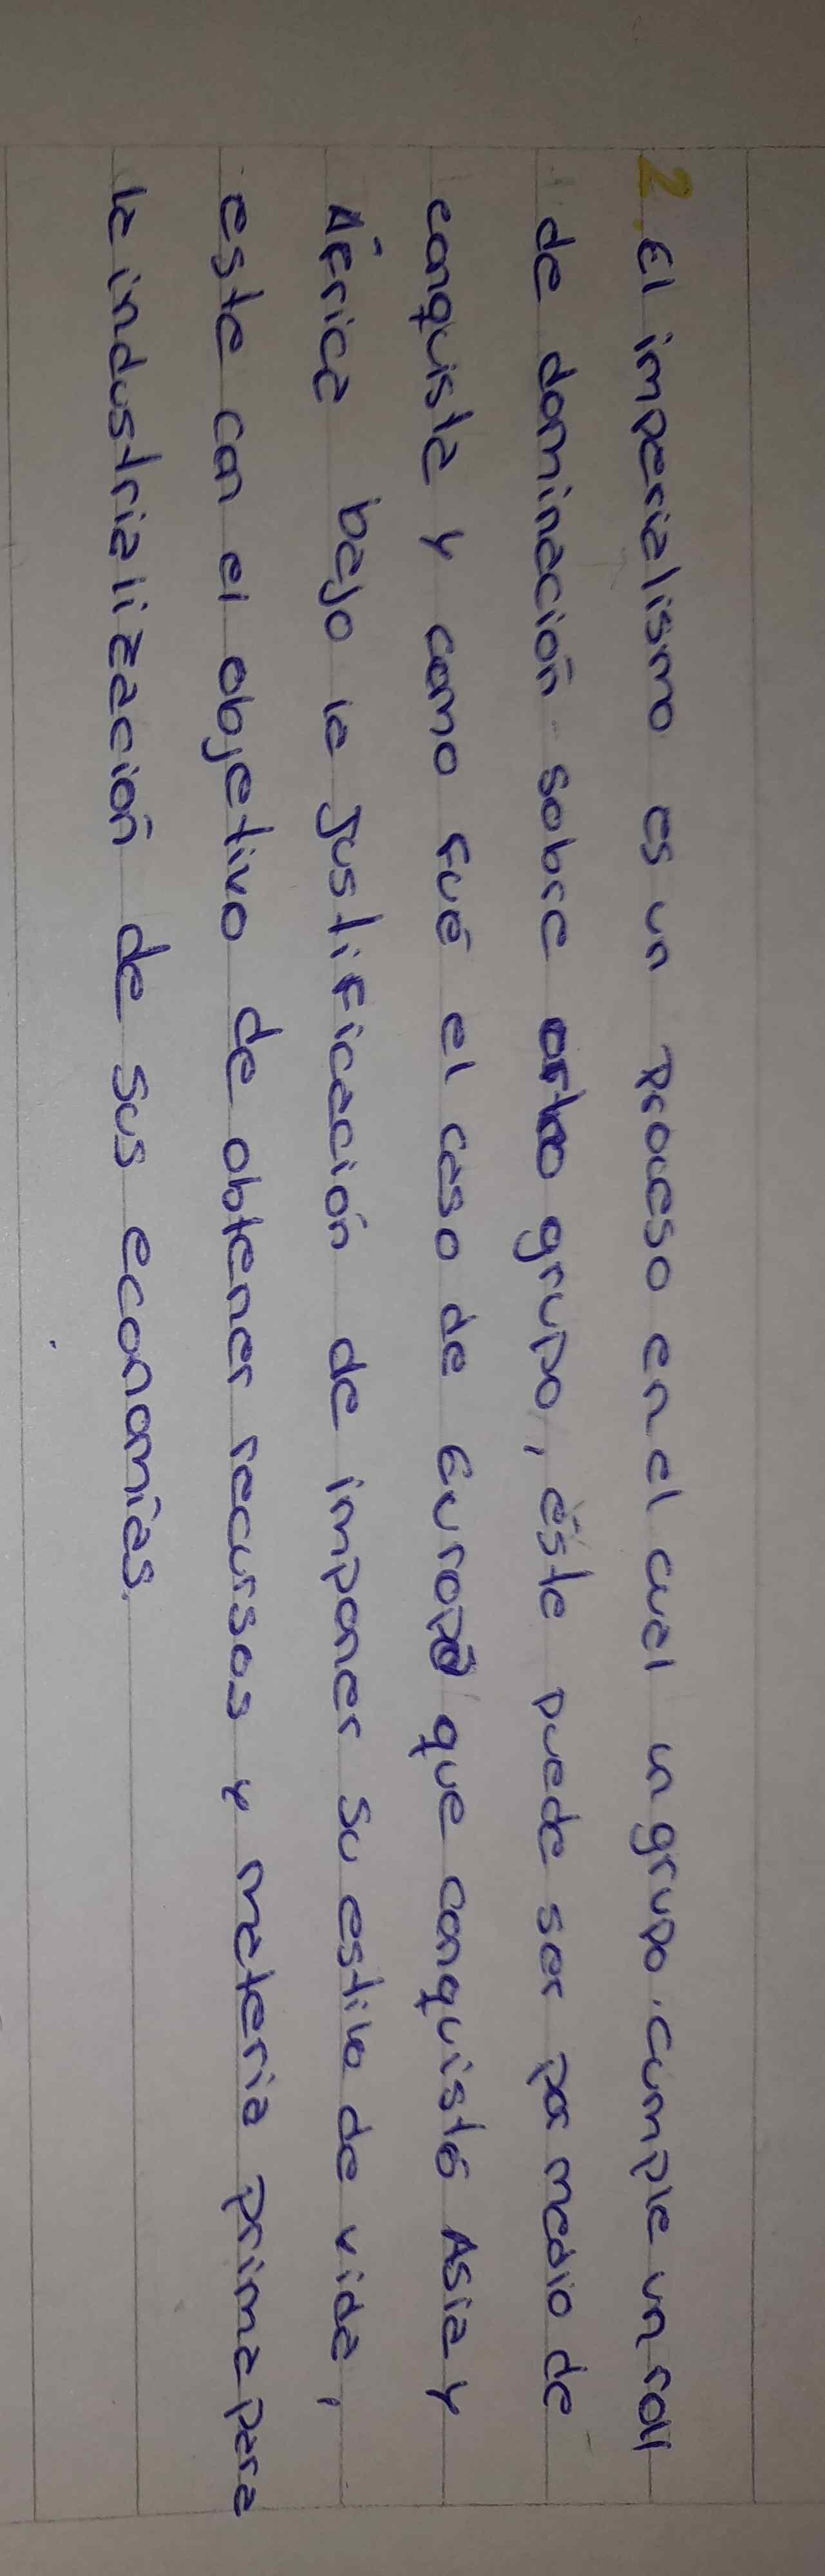 2. El imperialismo es un proceso en el cual un grupo cumple un roll
de dominación sobre otro grupo, éste puede ser por medio de
conquista y como fué el caso de Europa que conquistó Asia y
África bajo la justificación de imponer su estilo de vida,
este con el objetivo de obtener recursos y materia prima para
la industrialización de sus economías.